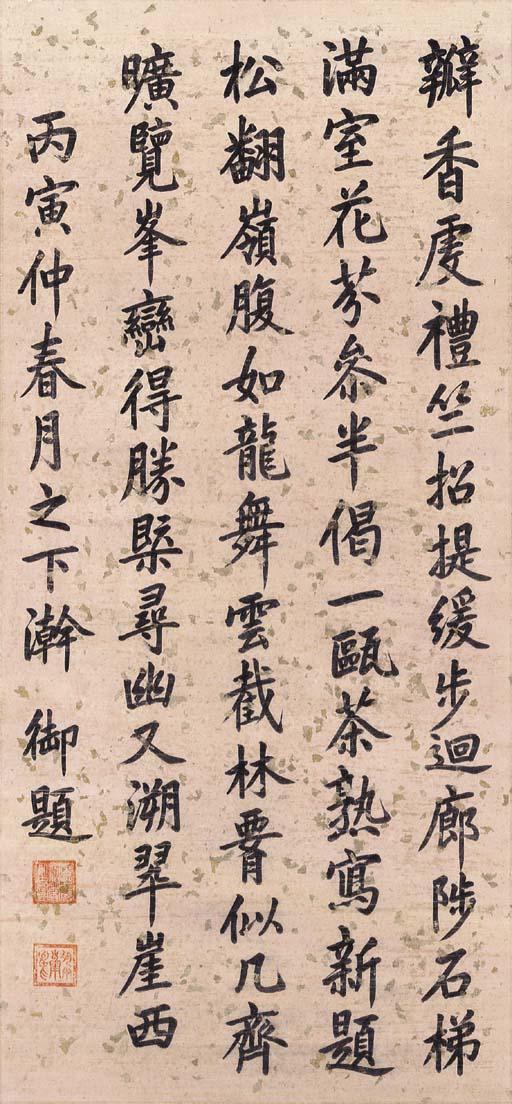 瓣香虔禮竺招提緩步迴廊陟石梯
滿室花芬叅半偈一甌茶熟寫新題
松翻嶺腹如龍舞雲截林腰似几齊
曠覽峯巒得勝槩尋幽又溯翠崖西
丙寅仲春月之下澣 御題